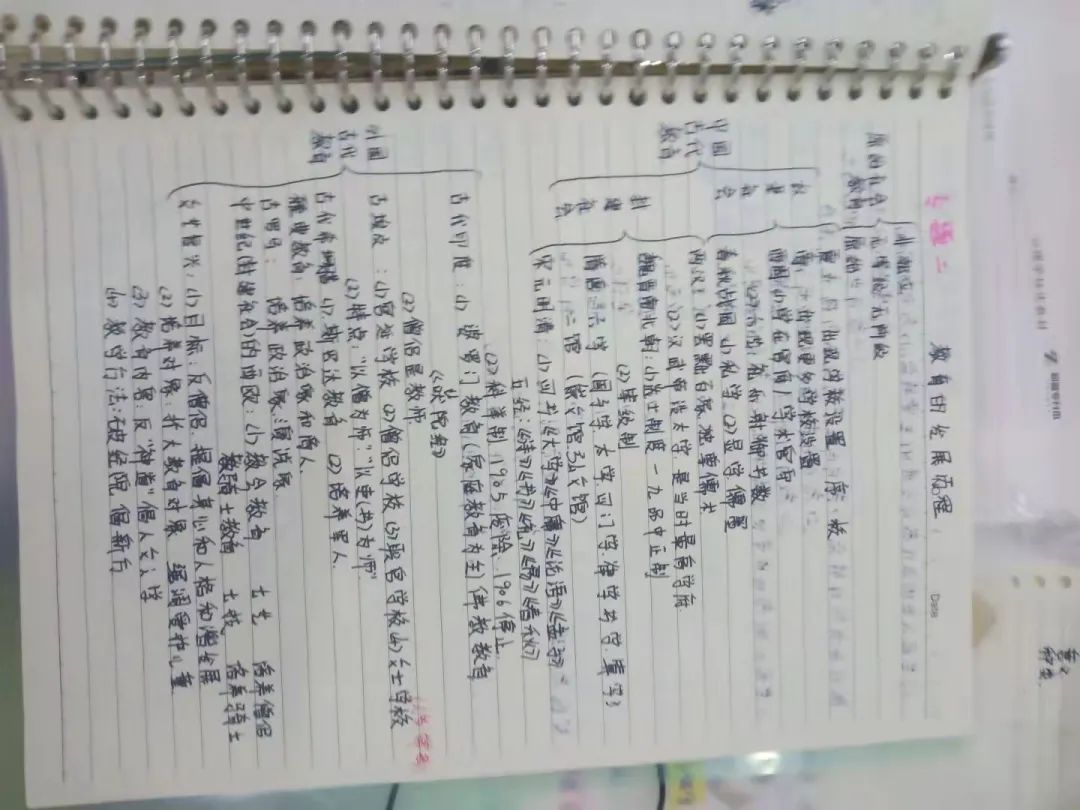 专题二 教育的发展历程
Date
原始社会教育
无等级 无阶级
原始
中国古代教育
奴隶社会
夏 出现学校设置 序、校
商:出现更多的学校设置
西周:小学在官府 学术官守
六艺:礼 乐 射 御 书 数
春秋战国 (1)私学 (2)显学 儒墨
封建社会
两汉:(1)罢黜百家 独尊儒术
(2)汉武帝设太学 是当时最高学府
魏晋南北朝:(1)士制度-九品中正制
(2)等级制
隋唐 六学(国子学 太学 四门学 律学 书学 算学)
二馆(崇文馆 弘文馆)
宋元明清:(1)四书《大学》《中庸》《论语》《孟子》
五经:《诗》《书》《礼》《易》《春秋》
(2)科举制 1905废除 1906停止
外国古代教育
古代印度:(1)婆罗门教育(家庭教育为主)佛教教育
《吠陀经》
(2)僧侣是教师
古埃及:(1)宫廷学校 (2)僧侣学校 (3)职官学校 (4)文士学校
(2)特点:“以僧为师”“以吏(书)为师”
古代希腊 (1)斯巴达教育 (2)培养军人
雅典教育:培养政治家和商人
古罗马:培养政治家 演说家
中世纪(封建社会)的西欧:(1)教会教育 七艺 培养僧侣
骑士教育 七技 培养骑士
文艺复兴:(1)目标:反僧侣,提倡身心和人格和谐发展
(2)培养对象:扩大教育对象 强调爱护儿童
(3)教育内容:反“神道”倡人文人学
(4)教学方法:破经院 倡新方